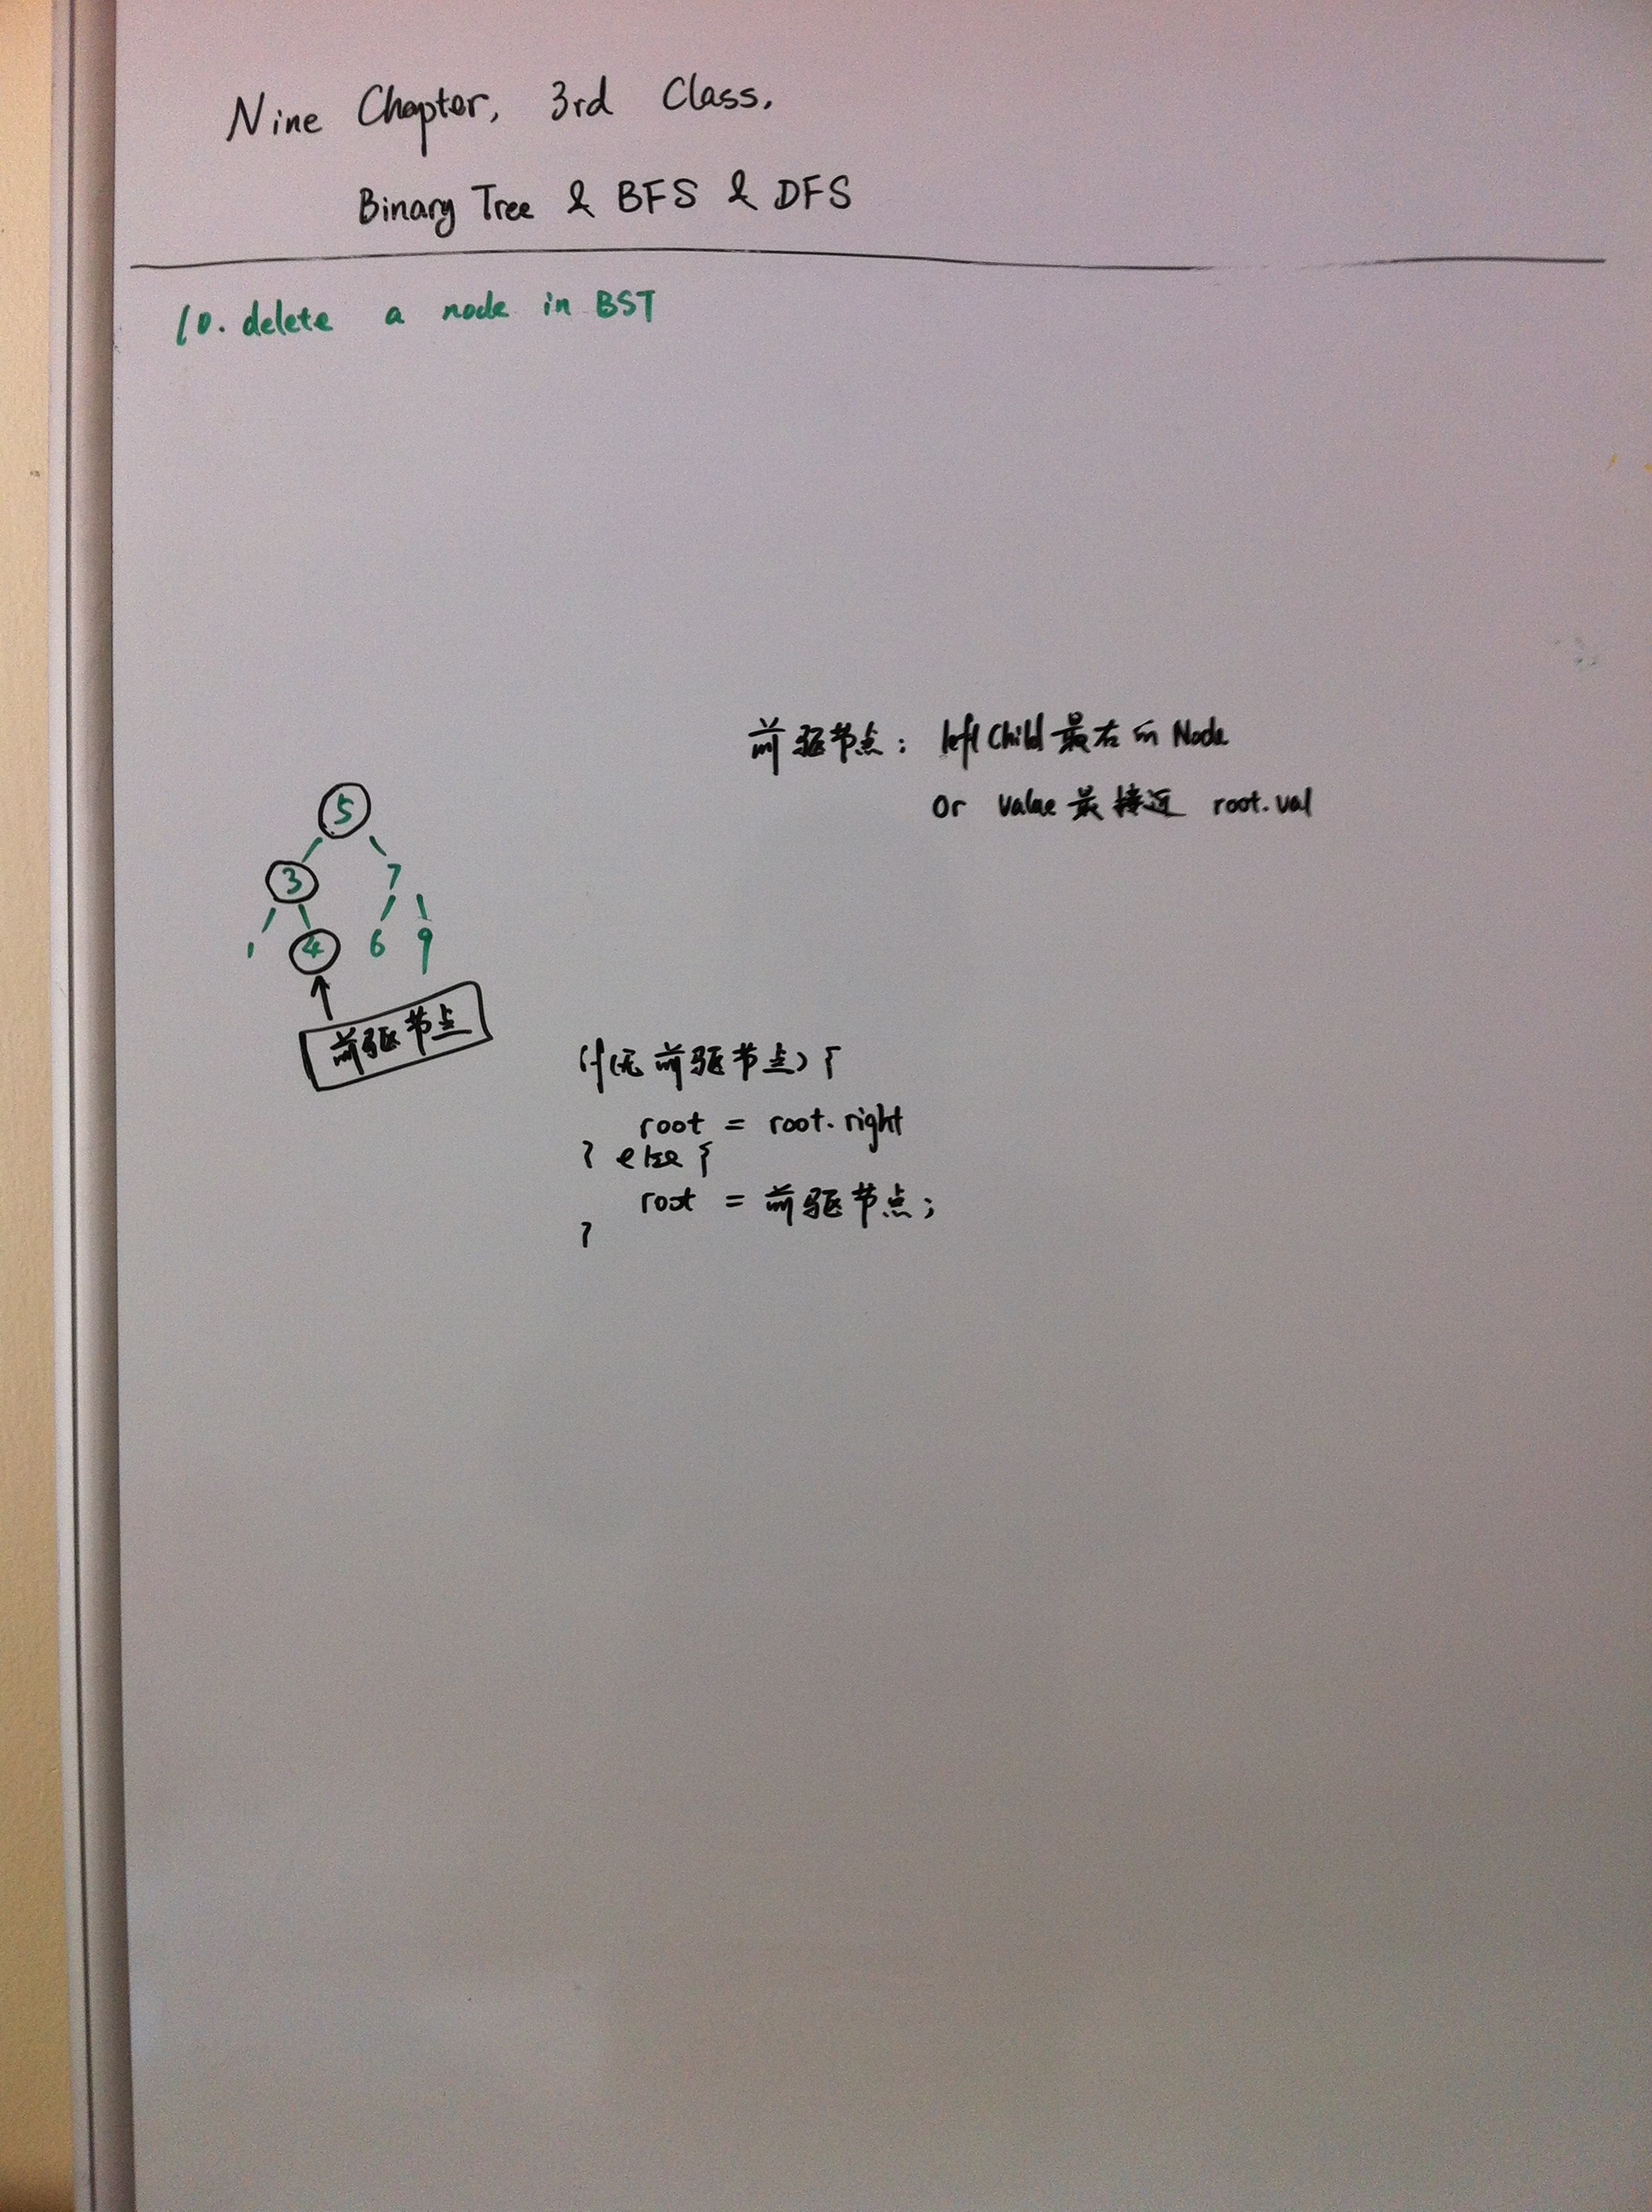 Nine Chapter, 3rd Class.
Binary Tree & BFS & DFS
10. delete a node in BST
前驱节点: left Child 最右的 Node
or value 最接近 root.val
5
3 7
1 4 6 9
前驱节点
if(无前驱节点) {
root = root.right
} else {
root = 前驱节点;
}